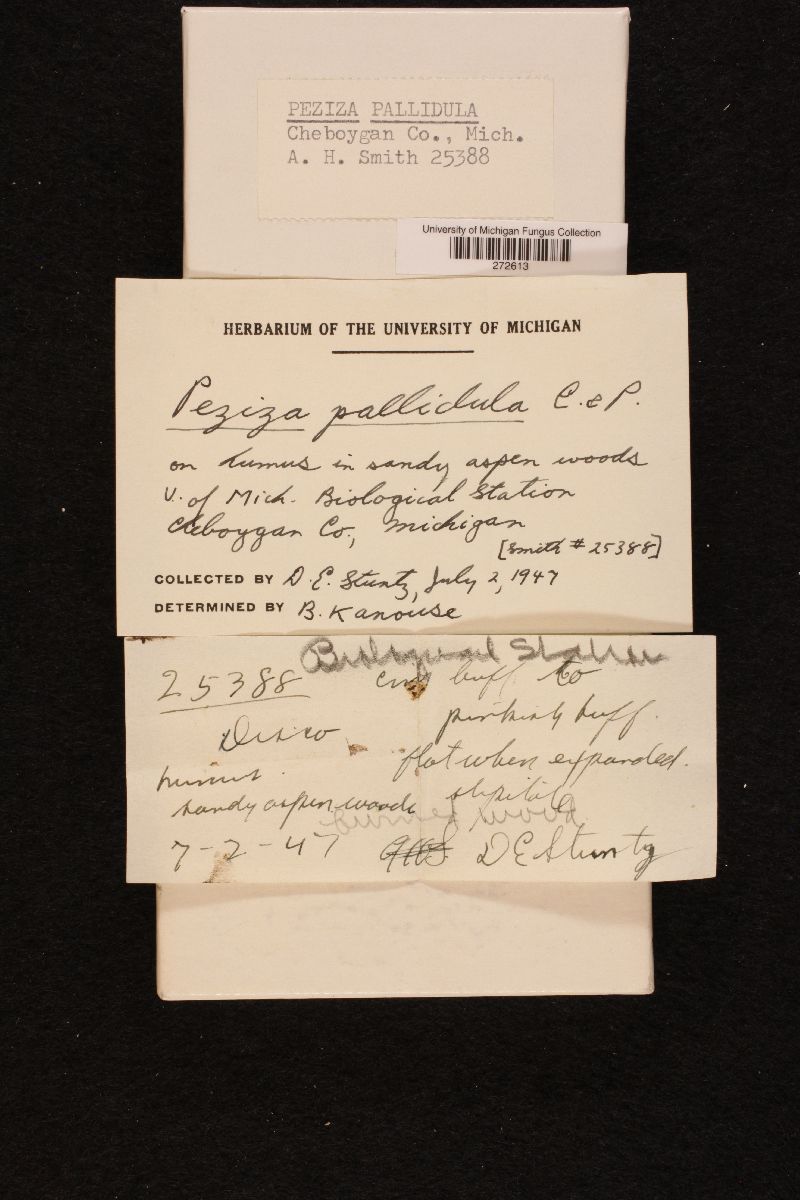 PEZIZA PALLIDULA
Cheboygan Co., Mich.
A. H. Smith 25388
University of Michigan Fungus Collection
272613
HERBARIUM OF THE UNIVERSITY OF MICHIGAN
Peziza pallidula C. & P.
on humus in sandy aspen woods
U. of Mich. Biological Station
Cheboygan Co., Michigan
[Smith # 25388]
COLLECTED BY D. E. Stuntz, July 2, 1947
DETERMINED BY B. Kanouse
Biological Station
25388
buff to
pinkish buff.
Disco
flat when expanded.
humus.
stipitate
sandy aspen woods
burned wood
7-2-47 D E Stuntz